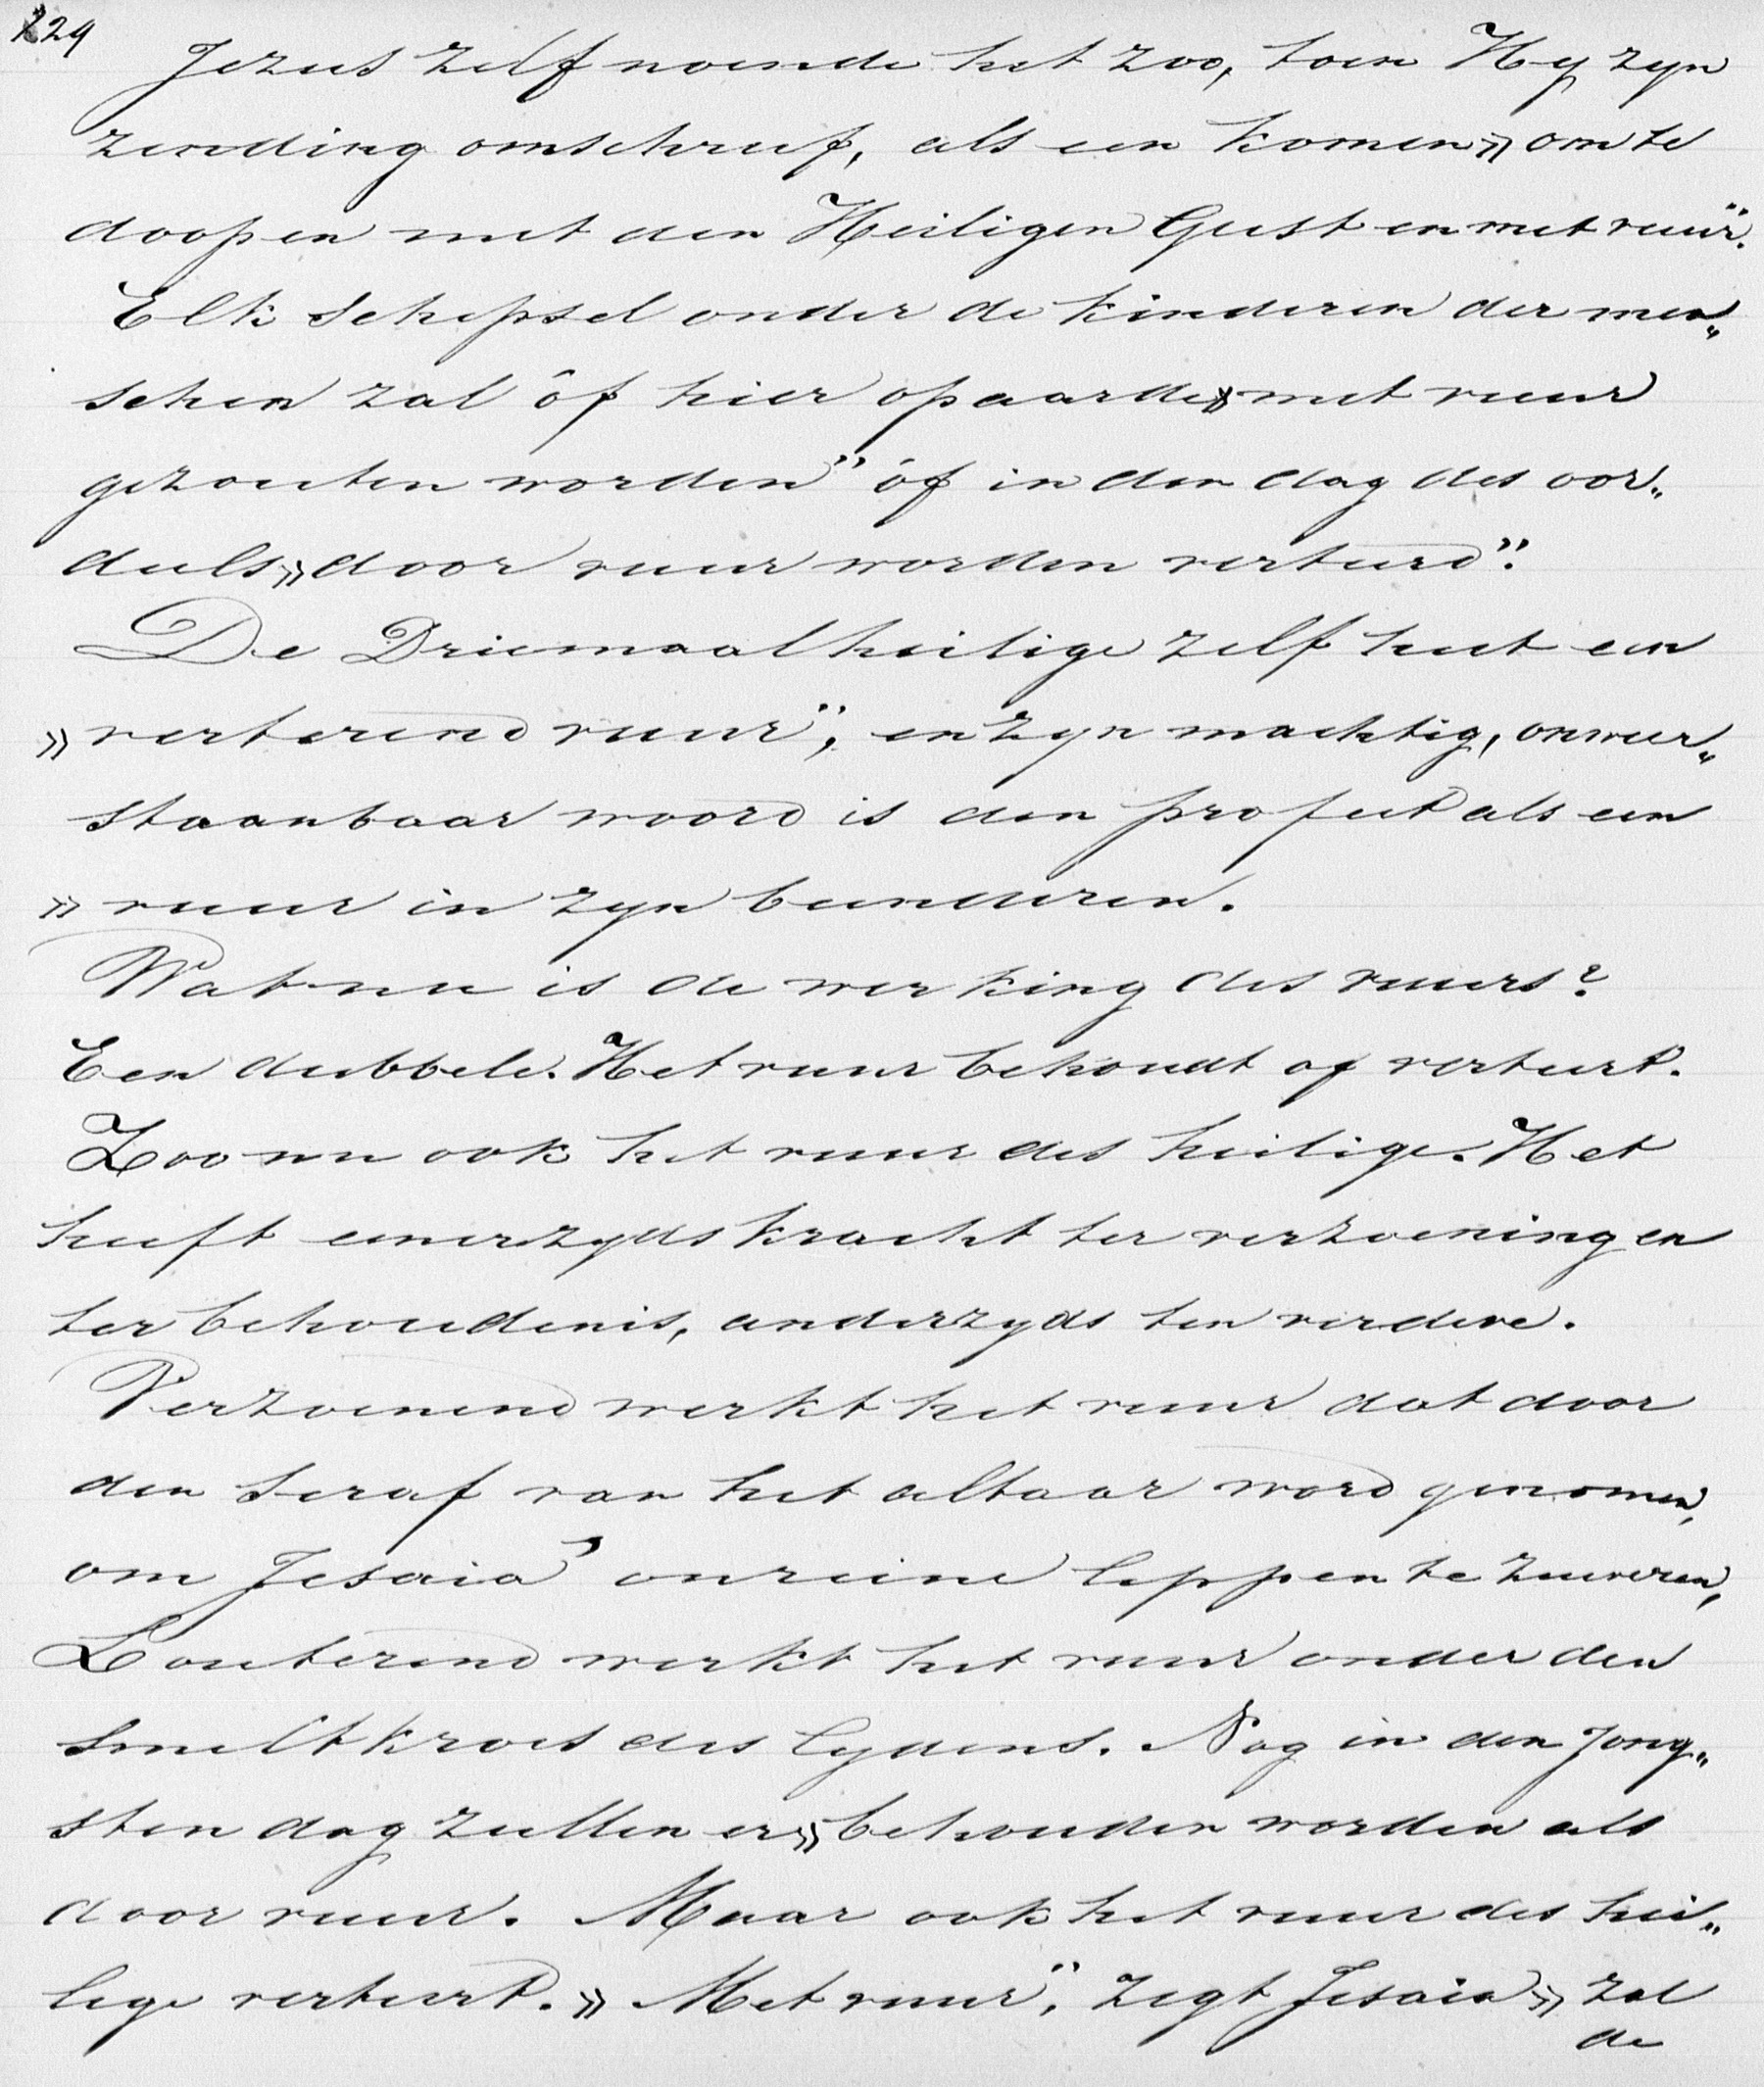 229
Jezus zelf noemde het zoo, toen Hy zyn
zending omschreef, als een komen » om te
doopen met den Heiligen Geest en met vuur".
Elk schepsel onder de kinderen der men„
schen zal òf hier op aarde » met vuur
gezouten worden" òf in den dag des oor„
deels » door vuur worden verteerd".
De Driemaalheilige zelf heet een
» verterend vuur", en zyn machtig, onweer„
staanbaar woord is den profeet als een
» vuur in zyn beenderen.
Wat nu is de werking des vuurs?
Een dubbele. Het vuur behoudt of verteert.
Zoo nu ook het vuur des heilige. Het
heeft eenerzyds kracht ter verzoening en
ter behoudenis, anderzyds ten verderve.
Verzoenend werkt het vuur dat door
den Seraf van het altaar word genomen,
om Jesaia' onreine lippen te zuiveren,
Louterend werkt het vuur onder den
smeltkroes des lydens. Nog in den jong„
sten dag zullen er » behouden worden als
door vuur. Maar ook het vuur des hei„
lige verteert. » Met vuur", zegt Jesaia » zal
de